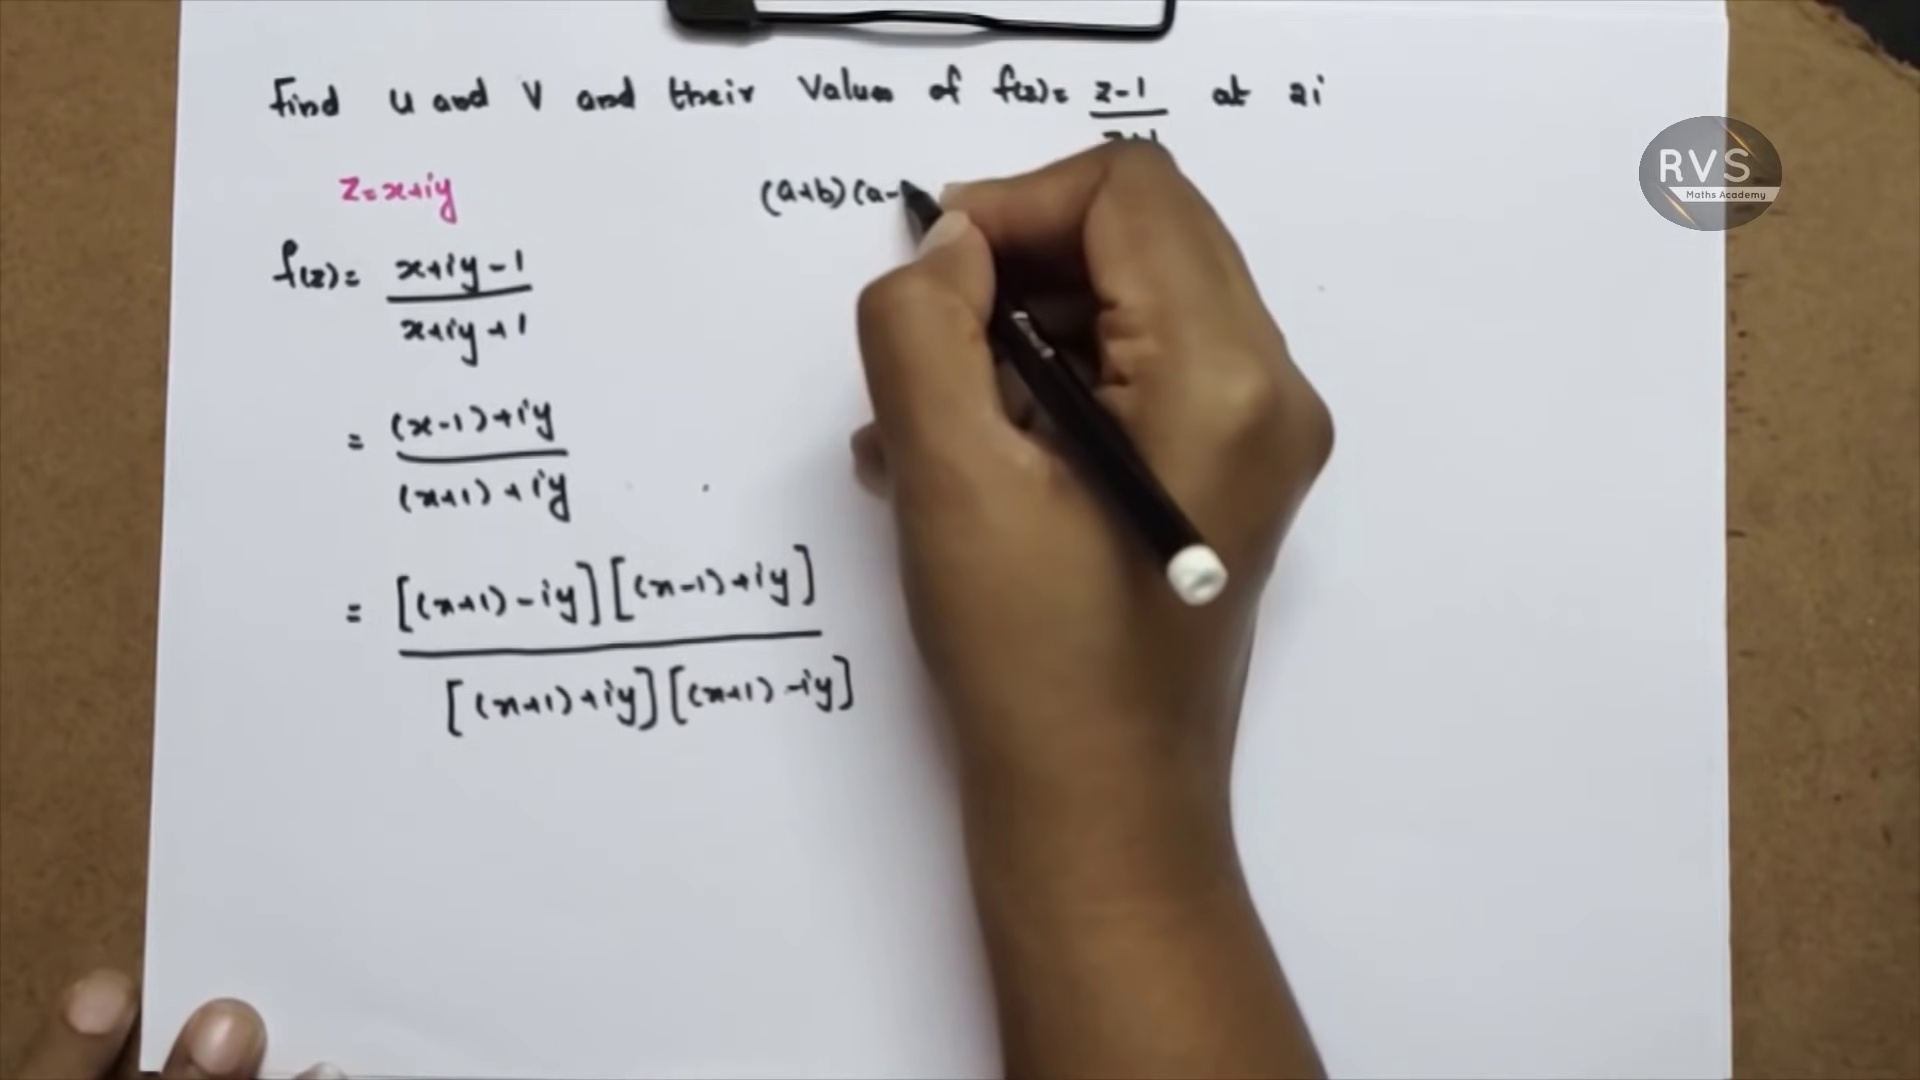 Find u and v and their values of f(z)= z-1 at 2i
z+1
RVS
Maths Academy
z=x+iy
(a+b)(a-
f(z)= x+iy-1
x+iy+1
= (x-1)+iy
(x+1)+iy
= [(x+1)-iy][(x-1)+iy]
[(x+1)+iy][(x+1)-iy]